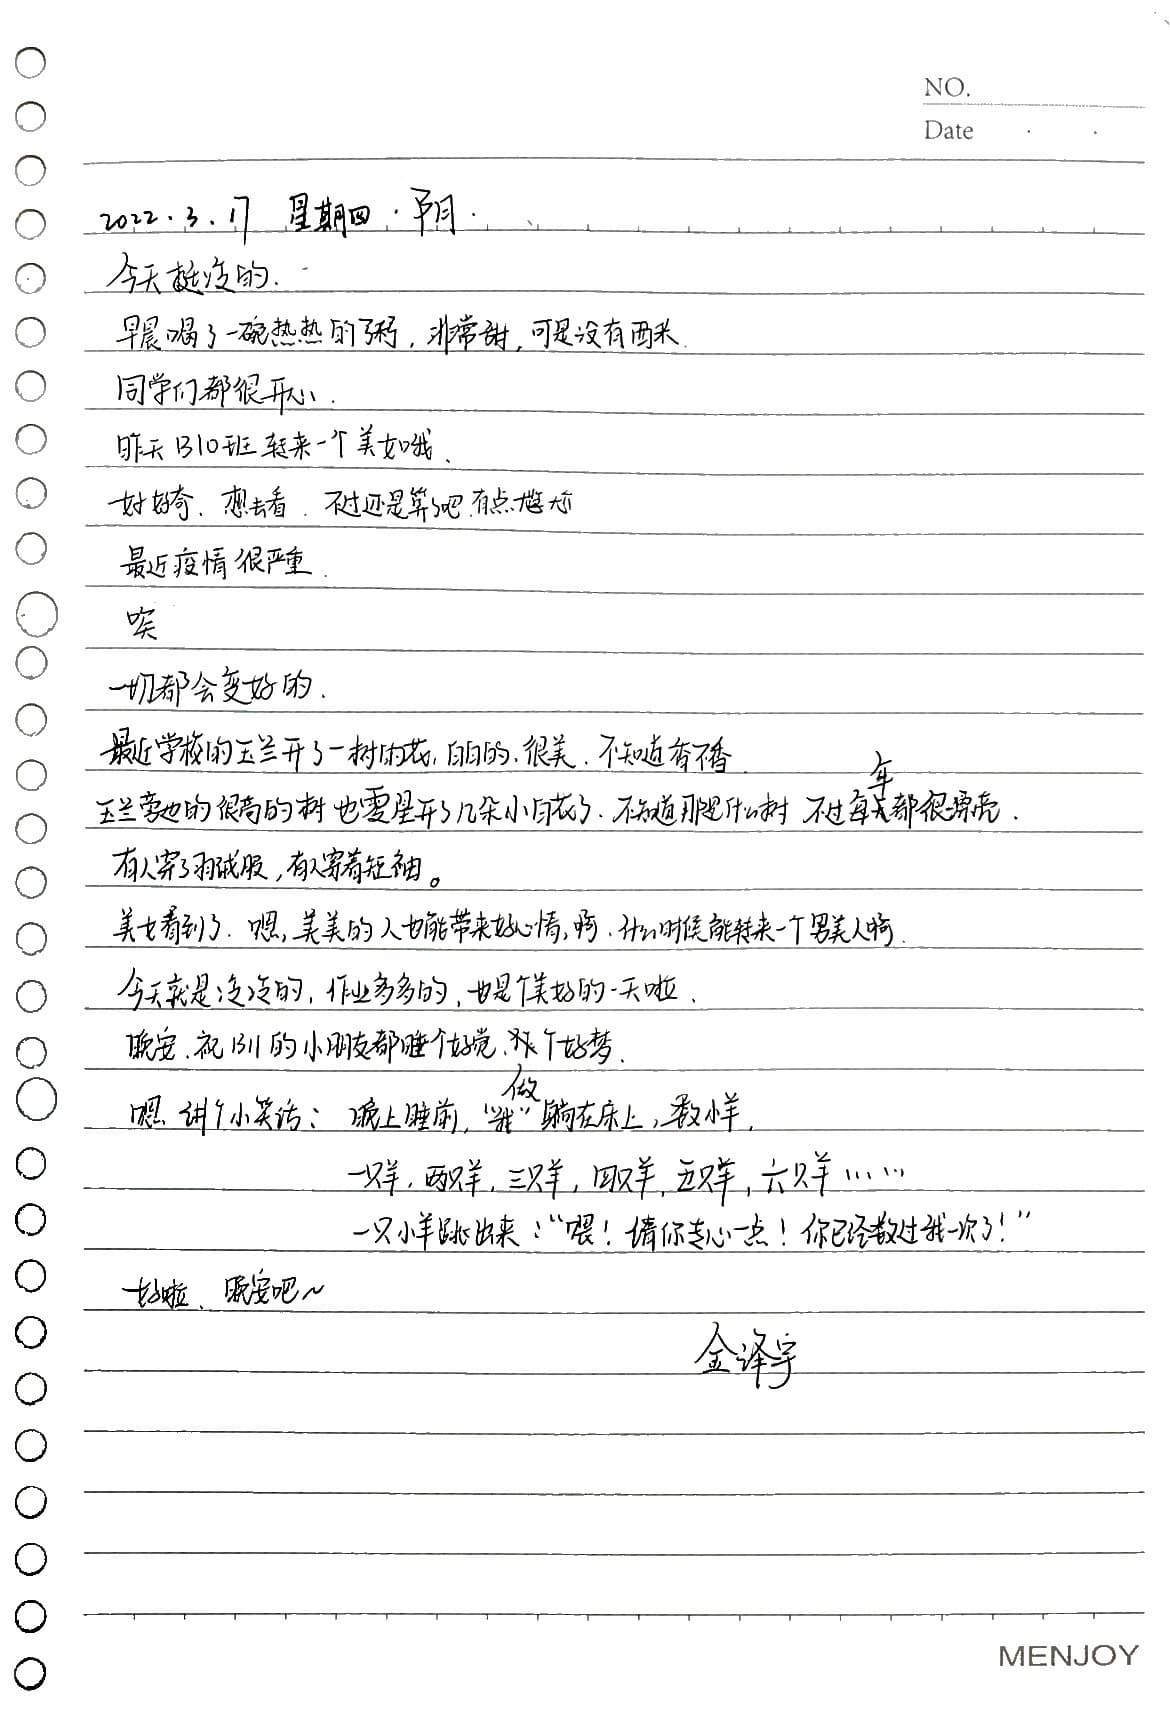 NO.
Date
2022.3.17 星期四·阴.
今天挺冷的.
早晨喝了一碗热热的粥,非常甜,可是没有西米.
同学们都很开心.
昨天B10班转来一个美女哦.
好好奇.想去看.不过还是算了吧.有点尴尬
最近疫情很严重.
唉
一切都会变好的.
最近学校的玉兰开了一树的花,白白的,很美.不知道香不香
玉兰旁边的很高的树也零星开了几朵小白花了.不知道那是什么树 不过每年都很漂亮.
有人穿了羽绒服,有人穿着短袖。
美女看到了.嗯,美美的人也能带来好心情,啊.什么时候能转来一个男美人啊.
今天就是冷冷的,作业多多的,也是个美好的一天啦.
晚安.祝B11的小朋友都睡个好觉.做个好梦.
嗯 讲个小笑话:晚上睡前,“我”躺在床上,数小羊.
一只羊,两只羊,三只羊,四只羊,五只羊,六只羊……
一只小羊跳出来:“喂!请你专心一点!你已经数过我一次了!”
好啦.晚安吧~
金泽宇
MENJOY